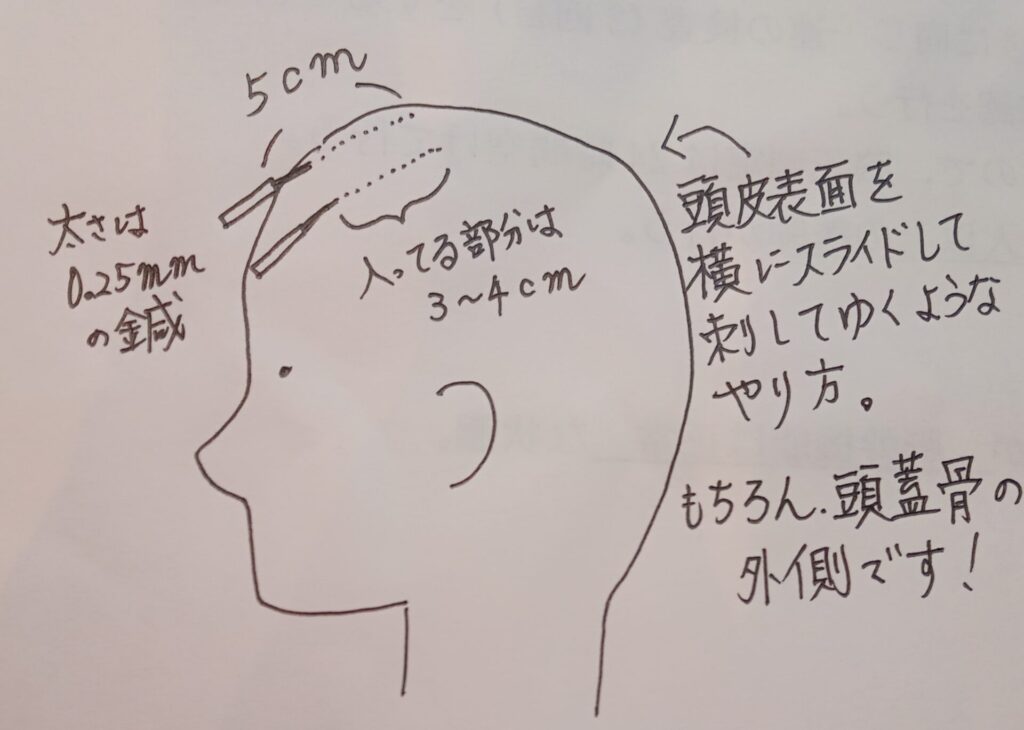 5cm
太さは
0.25mm
の鍼
入ってる部分は
3~4cm
頭皮表面を
横にスライドして
刺してゆくような
やり方。
もちろん、頭蓋骨の
外側です!